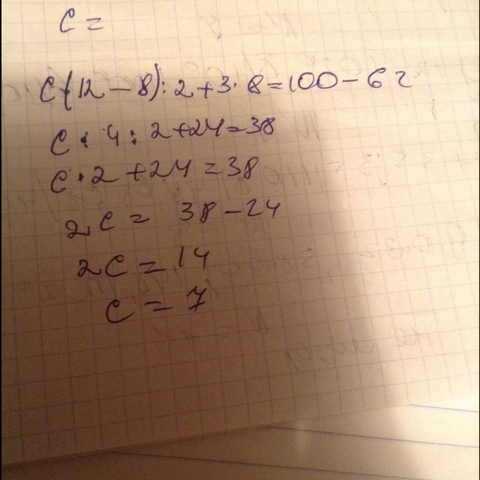 c =
c·(12 - 8) : 2 + 3·8 = 100 - 62
c · 4 : 2 + 24 = 38
c · 2 + 24 = 38
2c = 38 - 24
2c = 14
c = 7